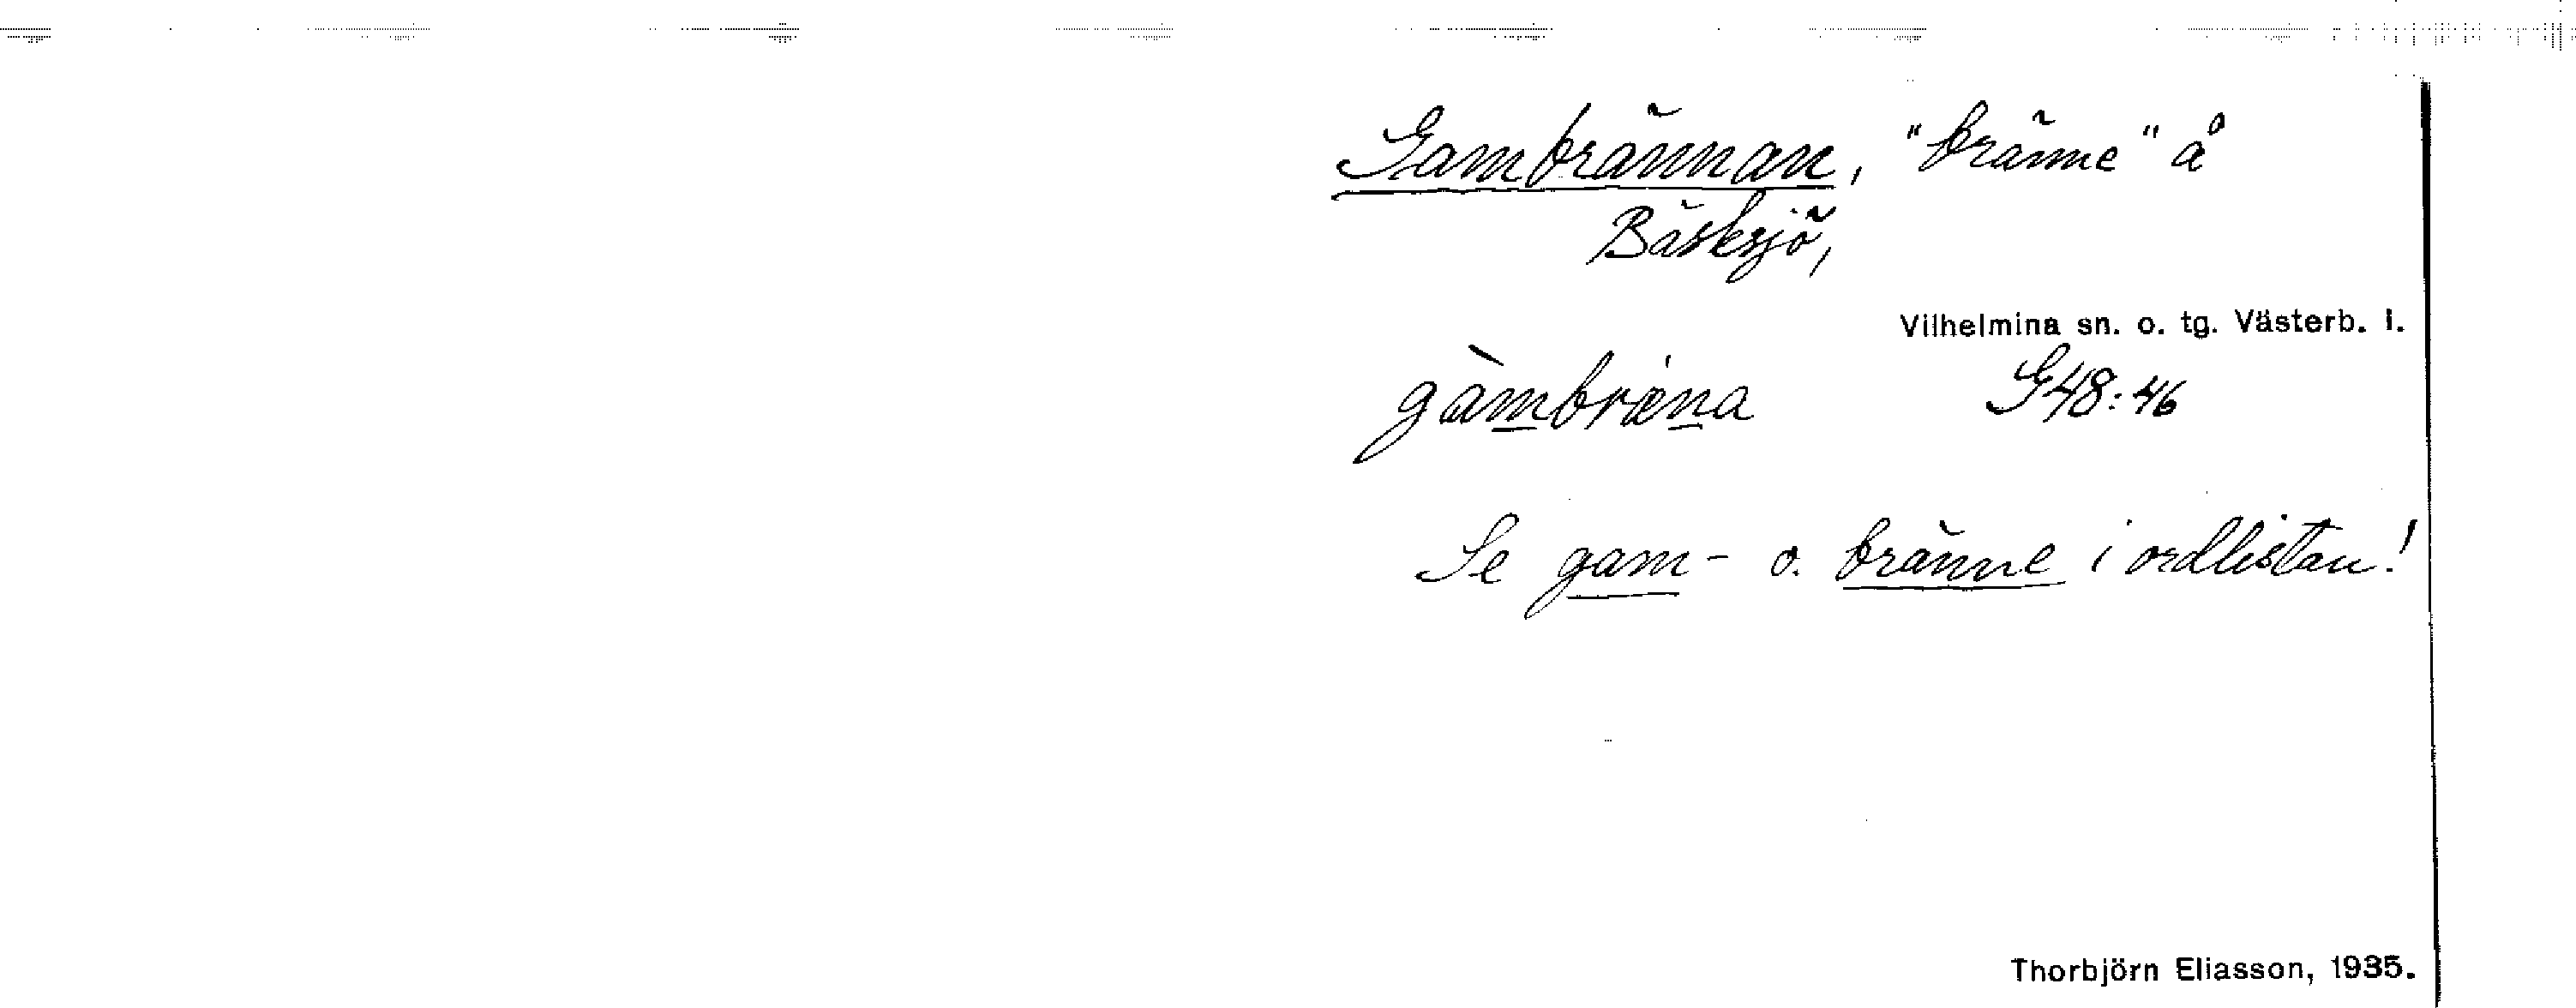 Gambrännan, "bränne" å
Bäsksjö,
Vilhelmina sn. o. tg. Västerb. l.
gàmbræ̀na G48:46
Se gam- o. bränne i ordlistan!
Thorbjörn Eliasson, 1935.